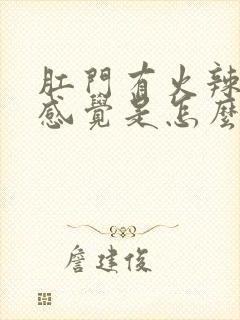 肛門有火辣
感覺是怎麼
詹建俊